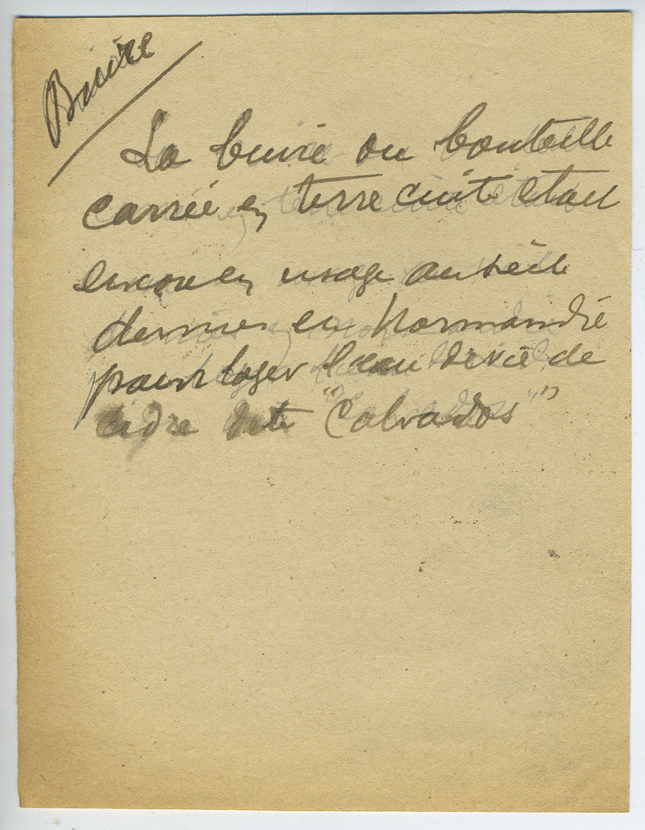 Buire
La buire ou bouteille
carrée en terre cuite etait
encore en usage au siècle
dernier en Normandie
pour loger l'eau de vie de
cidre dite "Calvados"